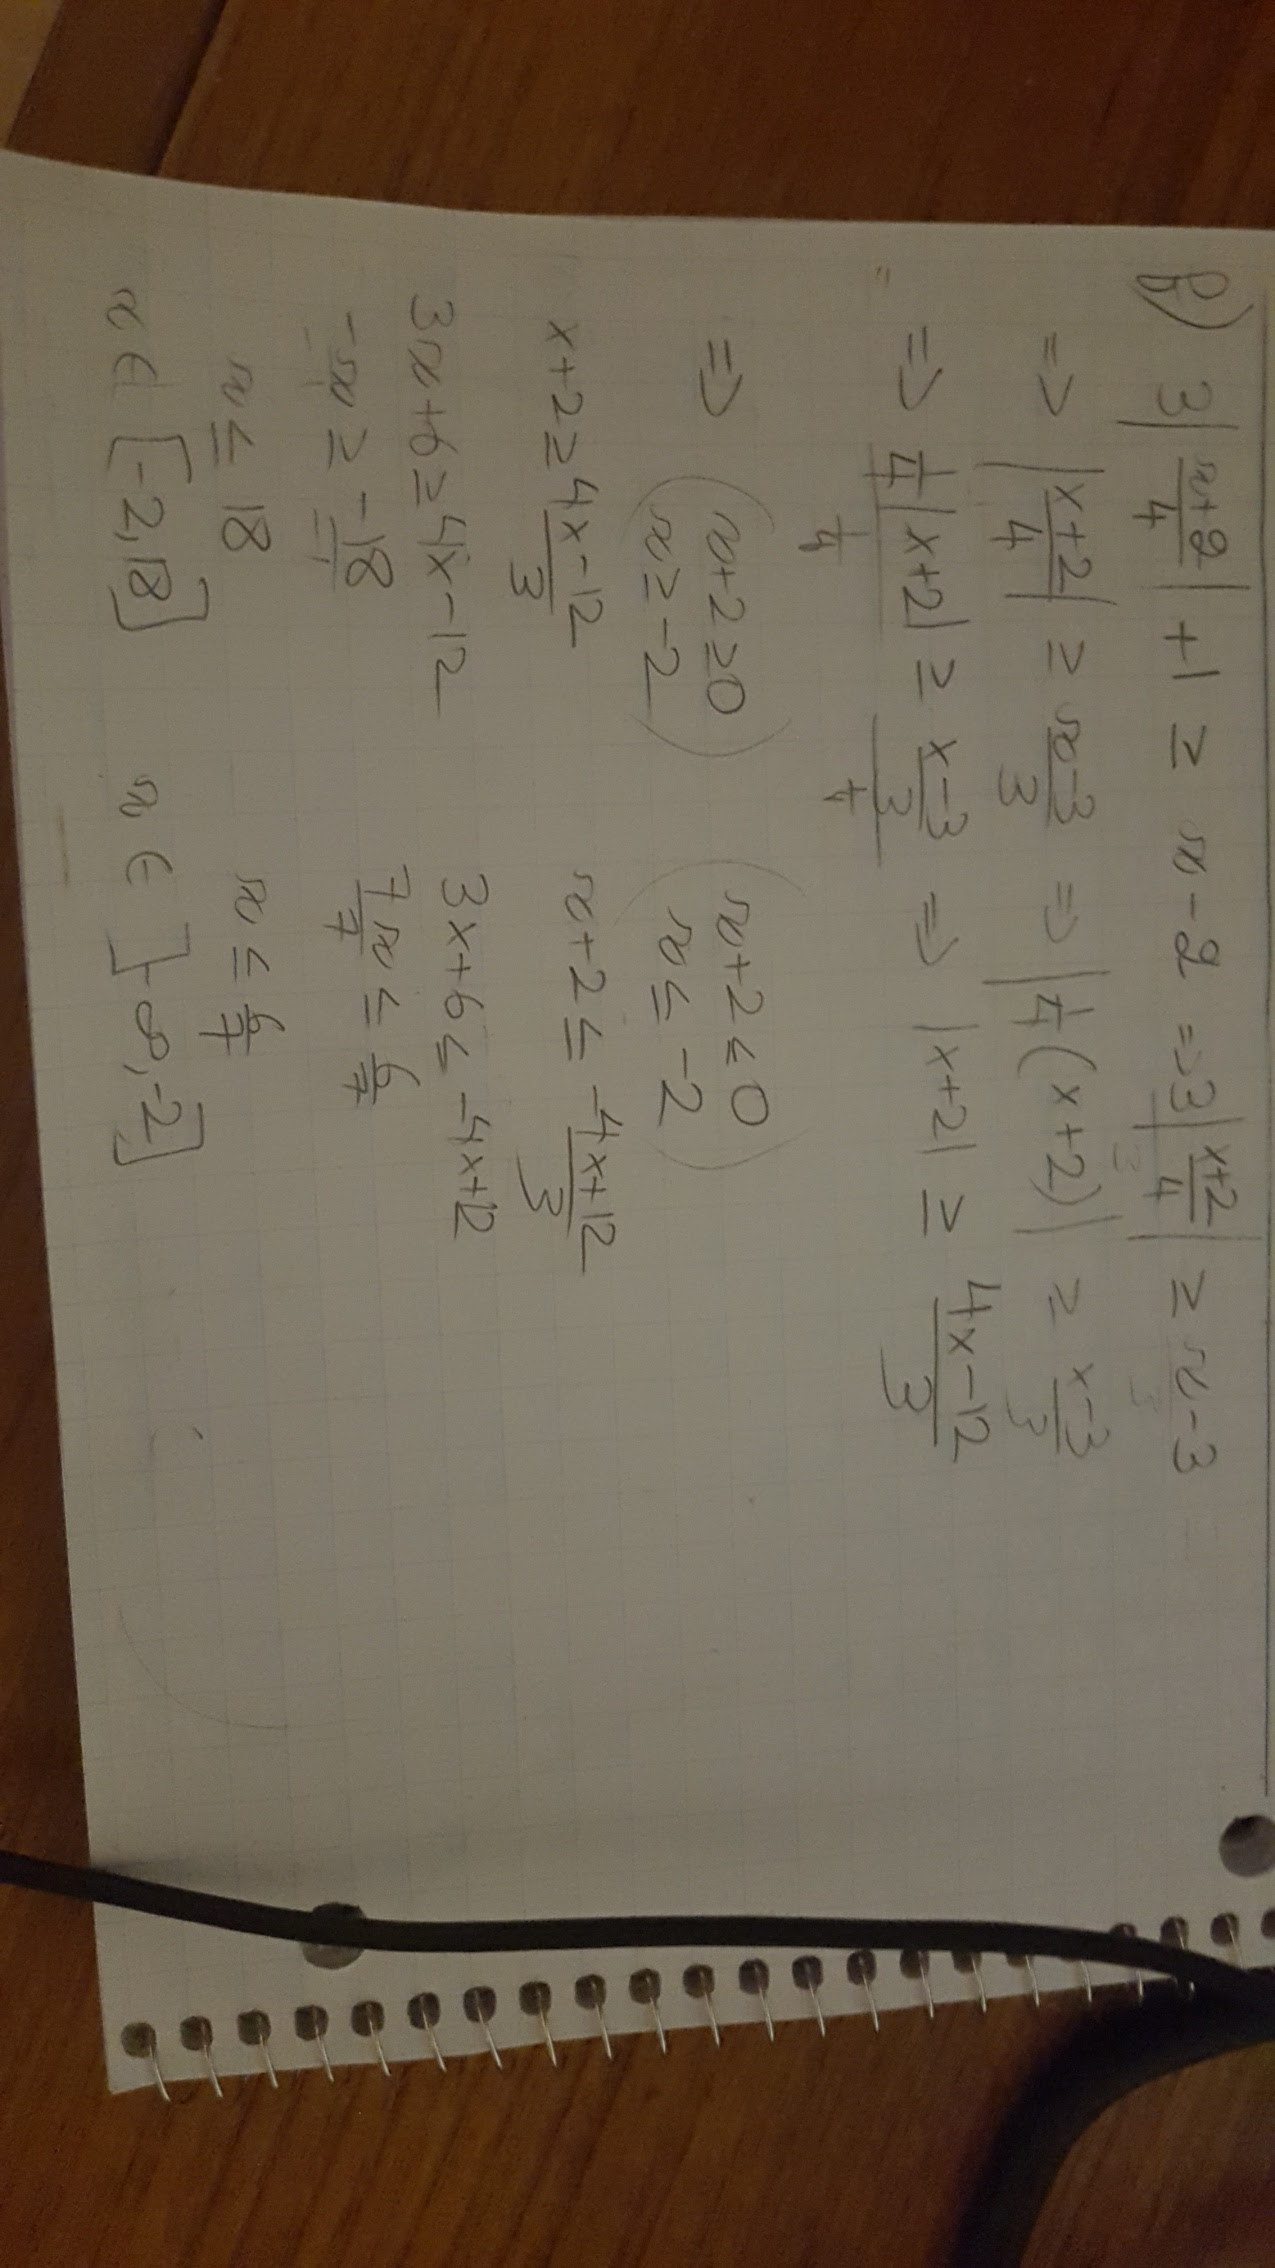 b) 3|x+2/4| + 1 ≥ x - 2 => 3|x+2/4| ≥ x - 3
=> |x+2/4| ≥ x-3/3 => |1/4 (x+2)| ≥ x-3/3
=> 1/4 |x+2| ≥ x-3/3 => |x+2| ≥ 4x-12/3
1/4 1/4
=> (x+2 ≥ 0 (x+2 < 0
x ≥ -2) x ≤ -2)
x+2 ≥ 4x-12/3 x+2 ≤ -4x+12/3
3x+6 ≥ 4x-12 3x+6 ≤ -4x+12
-x ≥ -18 7x/7 ≤ 6/7
x ≤ 18 x ≤ 6/7
x ∈ [-2, 18] x ∈ ]-∞, -2]